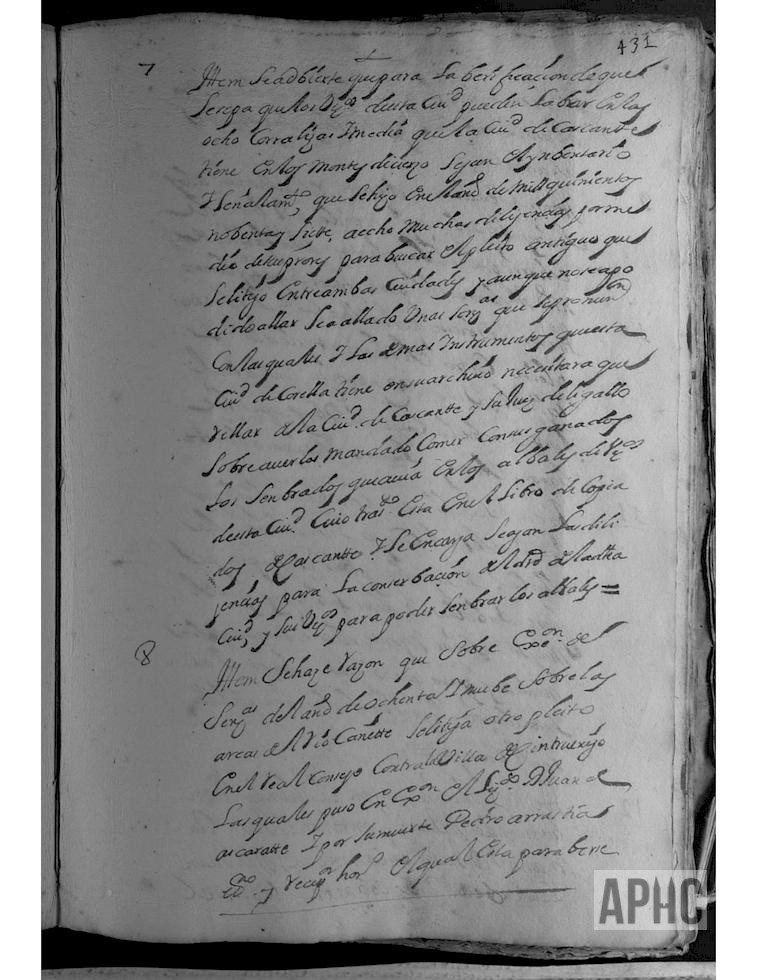 431
7
Ittem Se adbierte que para La berificacion de que
Se sepa que los Vzos desta Ciud pueden Labrar En las
ocho Corralizas I media que la Ciud de Cascante
tiene En los Montes de cierzo Segun El ynbentario
I Señalamto que Se hizo En el año de mill quinientos
nobenta y Siette, a echo Muchas dilijencias
para buscar El pleito antiguo que
Se litijo Entre ambas Ciudades y aunque no se a po
dido allar Se a allado Unas Senas que
Con las quales I Las demas Instrumentos que esta
Ciud de Corella tiene en su archibo necesitara que
rellar a la Ciud de Cascante y Su Juez
Sobre aver los mandado Comer Con sus ganados
Los Senbrados que avia En los albales de Vzos
desta Ciud Cuio trasdo Esta En el Libro de Copia
dos de Cascante I Se Encarga Segan Las dili
jencias para La conserbacion del dro de la dha
Ciud, y Sus Vzos para poder Senbrar los albales =
8
Ittem Se haze razon que Sobre Exon del
Senas del año de ochenta I nuebe Sobre las
arcas del Rio Cañette Se litija otro pleito
En el real Consejo Contra la Villa de Cintruenigo
Las quales puso En Exon El Dn Juan de
ascaratte I por Su muerte Pedro arrastia
y El qual Esta para berse
APHC